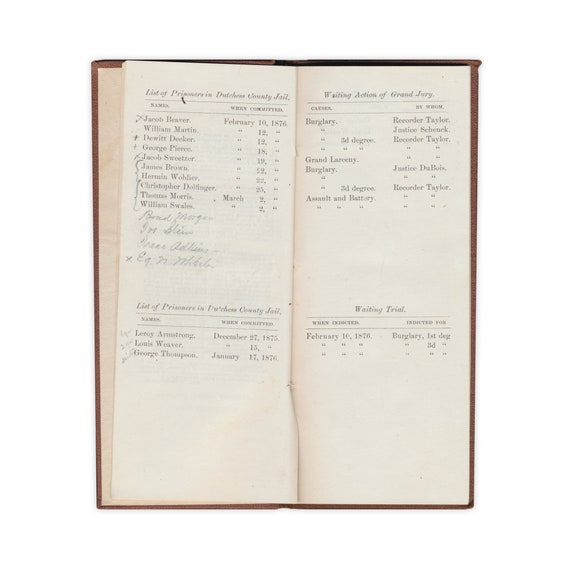 List of Prisoners in Dutchess County Jail,
NAMES. WHEN COMMITTED.
Jacob Beaver. February 10, 1876.
William Martin. " 12, "
Dewitt Decker. " 12, "
George Pierce. " 18, "
Jacob Sweetzer. " 19, "
James Brown. " 22, "
Hermin Wohlier. " 22, "
Christopher Dolfinger. " 25, "
Thomas Morris. March 2, "
William Swales. " 2, "
List of Prisoners in Dutchess County Jail,
NAMES. WHEN COMMITTED.
Leroy Armstrong. December 27, 1875.
Louis Weaver. " 15, "
George Thompson. January 17, 1876.
Waiting Action of Grand Jury.
CAUSES. BY WHOM.
Burglary. Recorder Taylor.
" Justice Schenck.
" 3d degree. Recorder Taylor.
" " " " "
Grand Larceny. " "
Burglary. Justice DuBois.
" " "
" 3d degree. Recorder Taylor.
Assault and Battery. " "
" " " " "
Waiting Trial.
WHEN INDICTED. INDICTED FOR
February 10, 1876. Burglary, 1st deg
" " " " 3d "
" " " " " "